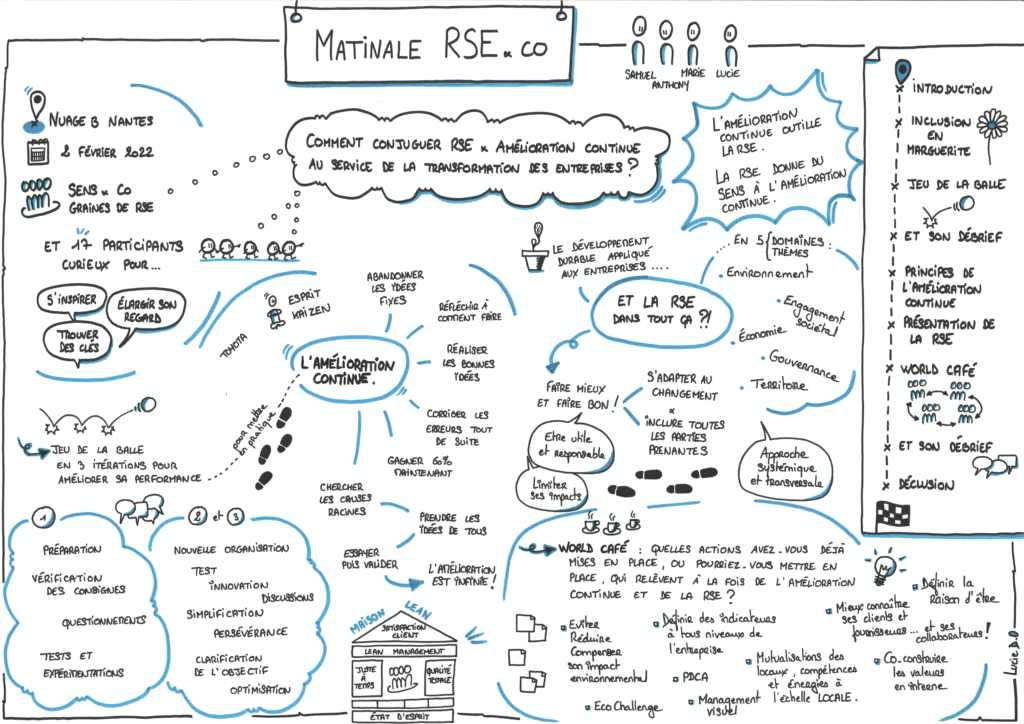 MATINALE RSE & CO
SAMUEL
ANTHONY
MARIE
LUCIE
NUAGE B NANTES
2 FÉVRIER 2022
SENS & CO
GRAINES DE RSE
ET 17 PARTICIPANTS
CURIEUX POUR...
S'INSPIRER
ÉLARGIR SON
REGARD
TROUVER
DES CLÉS
COMMENT CONJUGUER RSE & AMÉLIORATION CONTINUE
AU SERVICE DE LA TRANSFORMATION DES ENTREPRISES ?
L'AMÉLIORATION
CONTINUE OUTILLE
LA RSE.
LA RSE DONNE DU
SENS À L'AMÉLIORATION
CONTINUE.
INTRODUCTION
INCLUSION
EN
MARGUERITE
JEU DE LA BALLE
ET SON DÉBRIEF
PRINCIPES DE
L'AMÉLIORATION
CONTINUE
PRÉSENTATION DE
LA RSE
WORLD CAFÉ
ET SON DÉBRIEF
DÉCLUSION
TOYOTA
ESPRIT
KAIZEN
L'AMÉLIORATION
CONTINUE.
ABANDONNER
LES IDÉES
FIXES
RÉFLÉCHIR À
COMMENT FAIRE
RÉALISER
LES BONNES
IDÉES
CORRIGER LES
ERREURS TOUT
DE SUITE
GAGNER 60%
MAINTENANT
CHERCHER
LES CAUSES
RACINES
PRENDRE
LES IDÉES DE TOUS
ESSAYER
PUIS VALIDER
L'AMÉLIORATION
EST INFINIE !
pour mettre
en pratique
JEU DE LA BALLE
EN 3 ITÉRATIONS POUR
AMÉLIORER SA PERFORMANCE
1
PRÉPARATION
VÉRIFICATION
DES CONSIGNES
QUESTIONNEMENTS
TESTS ET
EXPÉRIMENTATIONS
2 et 3
NOUVELLE ORGANISATION
TEST
INNOVATION
DISCUSSIONS
SIMPLIFICATION
PERSÉVÉRANCE
CLARIFICATION
DE L'OBJECTIF
OPTIMISATION
MAISON LEAN
SATISFACTION
CLIENT
LEAN MANAGEMENT
JUSTE
À
TEMPS
QUALITÉ
TOTALE
ÉTAT D'ESPRIT
LE DÉVELOPPEMENT
DURABLE APPLIQUÉ
AUX ENTREPRISES ....
ET LA RSE
DANS TOUT ÇA ?!
... EN 5 { DOMAINES :
THÈMES
Environnement
Engagement
sociétal
Économie
Gouvernance
Territoire
FAIRE MIEUX
ET FAIRE BON !
S'ADAPTER AU
CHANGEMENT
&
INCLURE TOUTES
LES PARTIES
PRENANTES
Etre utile
et responsable
Limiter
ses impacts
Approche
systémique
et transversale
WORLD CAFÉ : QUELLES ACTIONS AVEZ-VOUS DÉJÀ
MISES EN PLACE, OU POURRIEZ-VOUS METTRE EN
PLACE, QUI RELÈVENT À LA FOIS DE L'AMÉLIORATION
CONTINUE ET DE LA RSE ?
Eviter
Réduire
Compenser
son impact
environnemental
Eco Challenge
Définir des indicateurs
à tous niveaux de
l'entreprise
PDCA
Management
visuel
Mutualisations des
locaux, compétences
et Énergies à
l'échelle LOCALE.
Mieux connaître
ses clients et
fournisseurs... et ses
collaborateurs !
Définir la
Raison d'être
Co-construire
les valeurs
en interne
Lucie D.